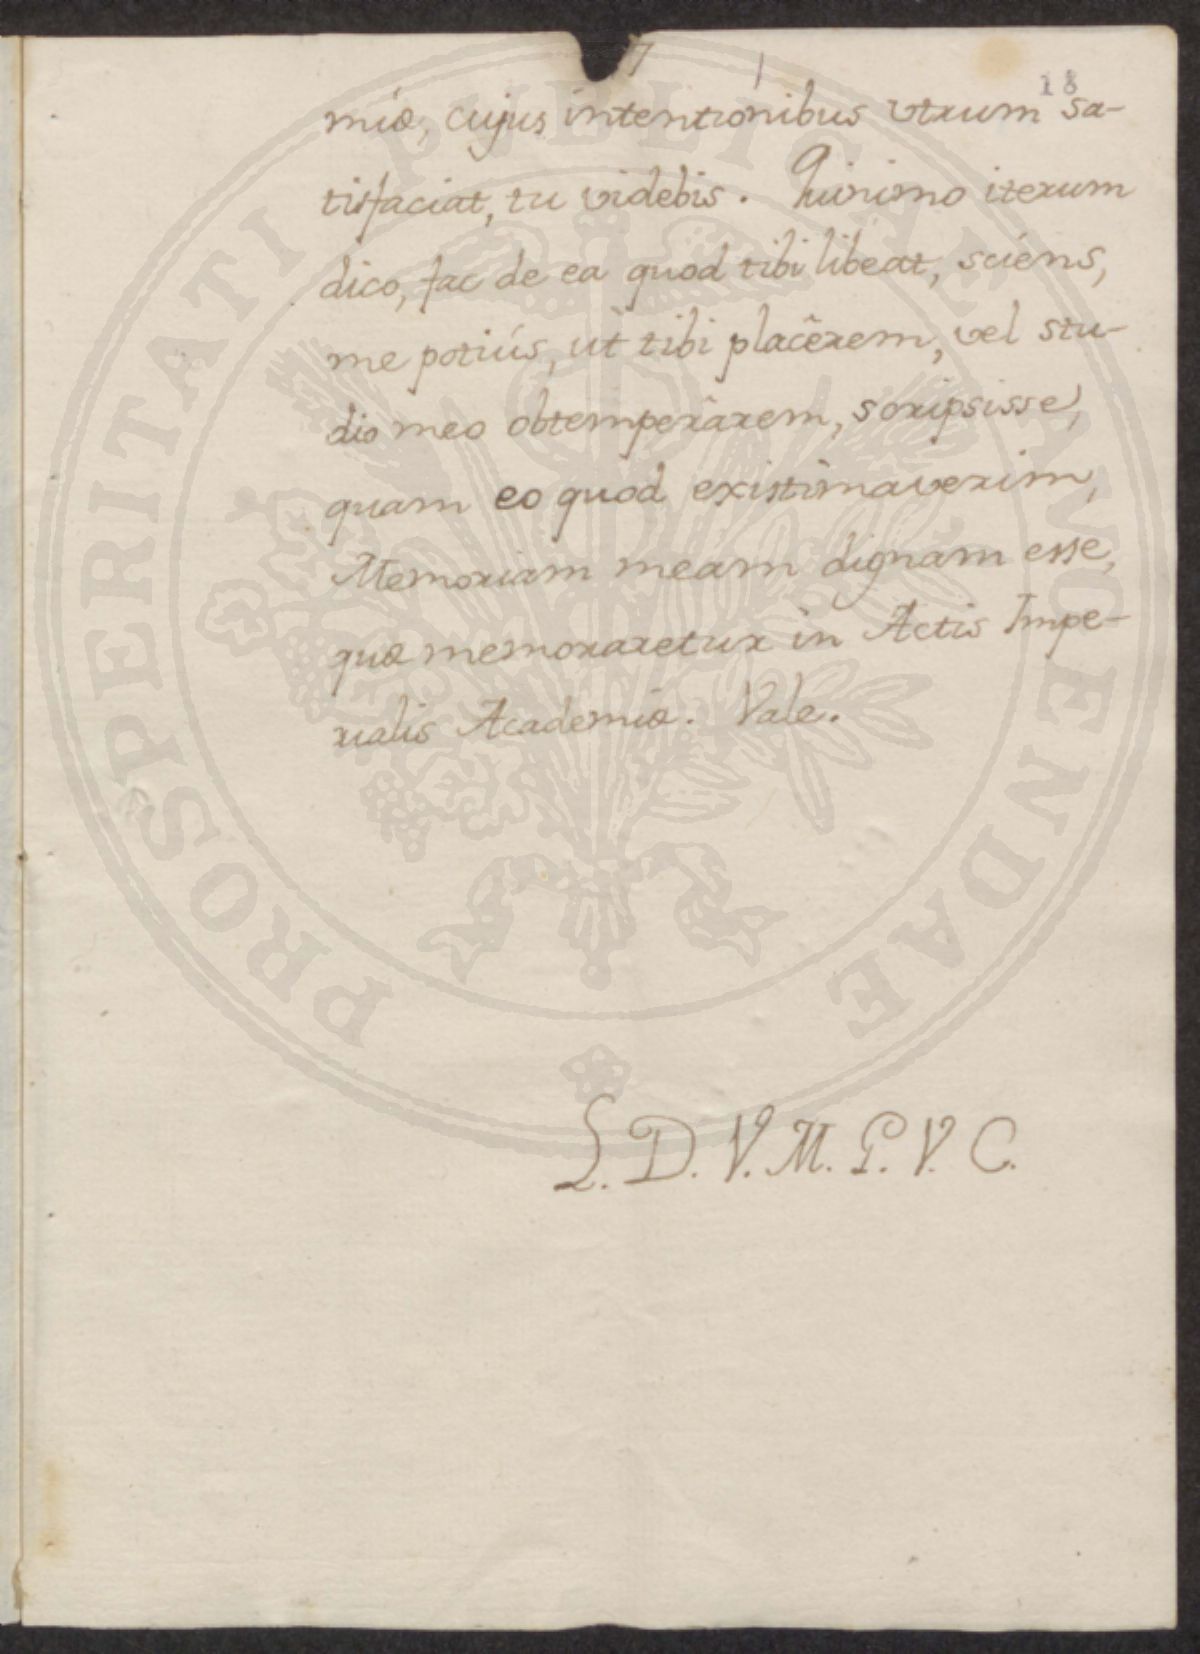 18
miæ, cujus intentionibus utrum sa-
tisfaciat, tu videbis. Quinimo iterum
dico, fac de ea quod tibi libeat, sciens,
me potiús, ùt tibi placêrem, vel stu-
dio meo obtemperârem, scripsisse,
quam eo quod existimaverim,
Memoriam meam dignam esse,
quæ memoraretur in Actis Impe-
rialis Academiæ. Vale.
L. D. V. M. P. V. C.
PROSPERITATI PUBLICAE AMOENDAE